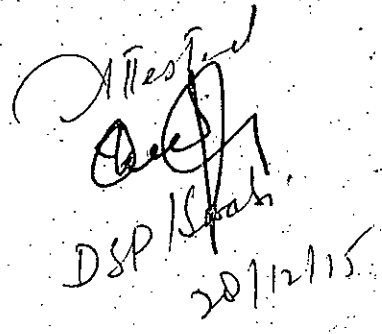 Attested
DSP/Swabi
20/12/15